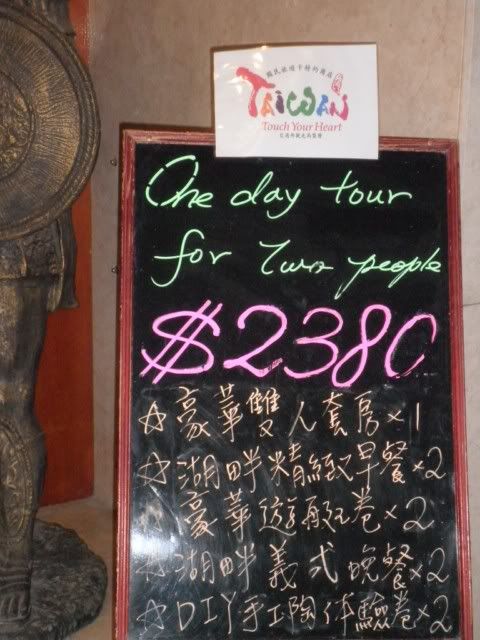 國民旅遊卡特約商店
TAIWAN
Touch Your Heart
交通部觀光局製發
One day tour
for Two people
$2380
☆豪華雙人套房×1
☆湖畔精緻早餐×2
☆豪華遊艇卷×2
☆湖畔義式晚餐×2
☆DIY手工陶体驗卷×2